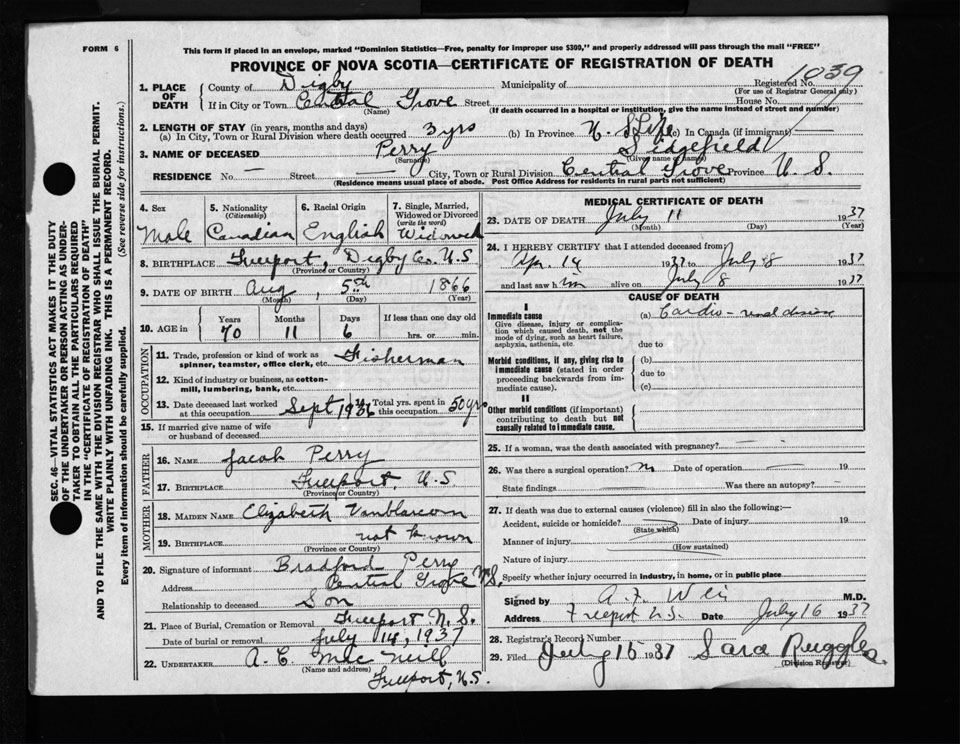 FORM 6
This form if placed in an envelope, marked "Dominion Statistics—Free, penalty for improper use $300," and properly addressed will pass through the mail "FREE"
PROVINCE OF NOVA SCOTIA—CERTIFICATE OF REGISTRATION OF DEATH
1039
1. PLACE OF DEATH County of Digby Municipality of Registered No.
(For use of Registrar General only)
If in City or Town Central Grove Street House No.
(Name) (If death occurred in a hospital or institution, give the name instead of street and number)
2. LENGTH OF STAY (in years, months and days)
(a) In City, Town or Rural Division where death occurred 3 yrs (b) In Province N. S. Life (c) In Canada (if immigrant) —
3. NAME OF DECEASED Perry Sidgefield
(Surname) (Given name or names)
RESIDENCE No. — Street — City, Town or Rural Division Central Grove Province N. S.
(Residence means usual place of abode. Post Office Address for residents in rural parts not sufficient)
4. Sex Male
5. Nationality (Citizenship) Canadian
6. Racial Origin English
7. Single, Married, Widowed or Divorced (write the word) Widowed
8. BIRTHPLACE Freeport, Digby Co. N.S
(Province or Country)
9. DATE OF BIRTH Aug. 5th 1866
(Month) (Day) (Year)
10. AGE in Years 70 Months 11 Days 6 If less than one day old hrs. or min.
OCCUPATION
11. Trade, profession or kind of work as spinner, teamster, office clerk, etc. Fisherman
12. Kind of industry or business, as cotton-mill, lumbering, bank, etc.
13. Date deceased last worked at this occupation Sept 1936 14. Total yrs. spent in this occupation 50 yrs
15. If married give name of wife or husband of deceased
FATHER
16. NAME Jacob Perry
17. BIRTHPLACE Freeport N.S
(Province or Country)
MOTHER
18. MAIDEN NAME Elizabeth Vanblarcom
19. BIRTHPLACE not known
(Province or Country)
20. Signature of informant Bradford Perry
Address Central Grove N.S.
Relationship to deceased Son
21. Place of Burial, Cremation or Removal Freeport N.S.
Date of burial or removal July 14, 1937
22. UNDERTAKER A. C. MacNeill
(Name and address)
Freeport, N.S.
MEDICAL CERTIFICATE OF DEATH
23. DATE OF DEATH July 11 1937
(Month) (Day) (Year)
24. I HEREBY CERTIFY that I attended deceased from:
Apr. 14 1937 to July 8 1937
and last saw him alive on July 8 1937
CAUSE OF DEATH
I
Immediate cause (a) Cardio-renal disease
Give disease, injury or complication which caused death, not the mode of dying, such as heart failure, asphyxia, asthenia, etc.
due to
Morbid conditions, if any, giving rise to immediate cause (stated in order proceeding backwards from immediate cause).
(b)
due to
(c)
II
Other morbid conditions (if important) contributing to death but not causally related to immediate cause.
25. If a woman, was the death associated with pregnancy? —
26. Was there a surgical operation? No Date of operation — 19
State findings Was there an autopsy? —
27. If death was due to external causes (violence) fill in also the following:—
Accident, suicide or homicide? Date of injury 19
(State which)
Manner of injury
(How sustained)
Nature of injury
Specify whether injury occurred in industry, in home, or in public place
Signed by A. F. Weir M.D.
Address Freeport N.S. Date July 16 1937
28. Registrar's Record Number
29. Filed July 15 1937 Sara Ruggles
(Division Registrar)
SEC. 46—VITAL STATISTICS ACT MAKES IT THE DUTY
OF THE UNDERTAKER OR PERSON ACTING AS UNDER-
TAKER TO OBTAIN ALL THE PARTICULARS REQUIRED
IN THE "CERTIFICATE OF REGISTRATION OF DEATH"
AND TO FILE THE SAME WITH THE DIVISION REGISTRAR WHO SHALL ISSUE THE BURIAL PERMIT.
WRITE PLAINLY WITH UNFADING INK. THIS IS A PERMANENT RECORD.
Every item of information should be carefully supplied. (See reverse side for instructions.)